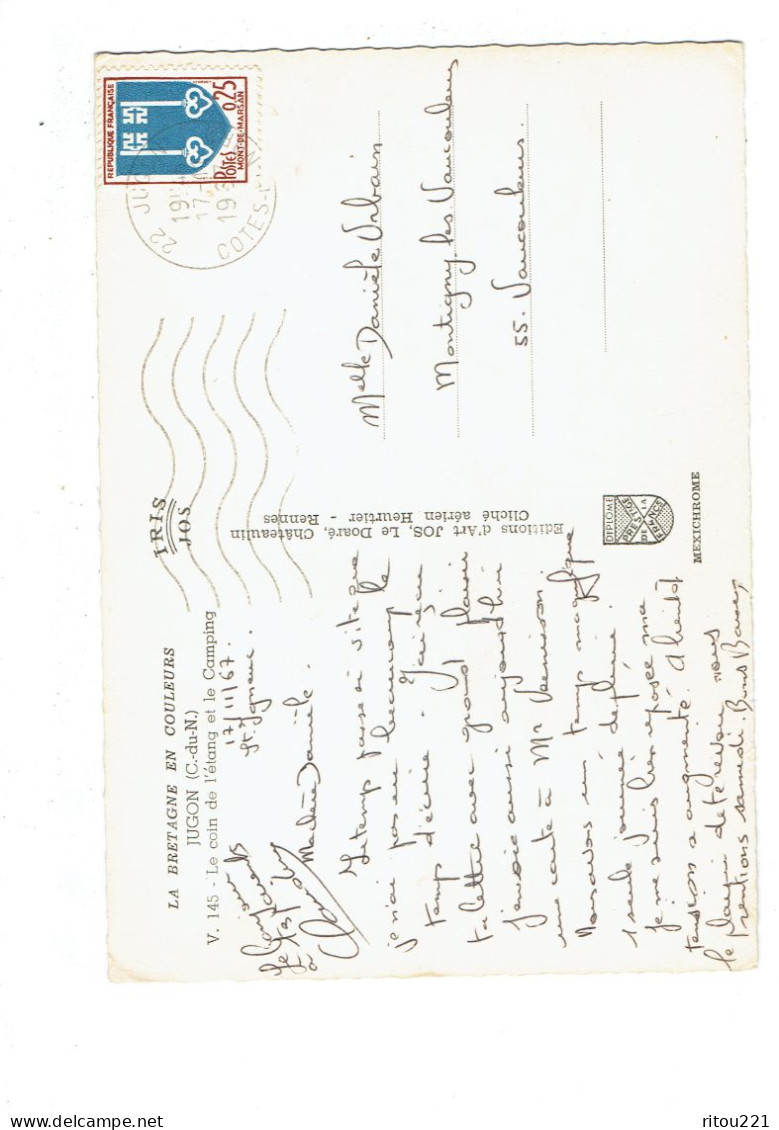 LA BRETAGNE EN COULEURS
JUGON (C.-du-N.)
V. 145 - Le coin de l'étang et le Camping
17/11/67.
St. Igneuc.
Ma chère Danièle.
Le temps passe si vite que
je n'ai pas eu beaucoup le
temps d'écrire. J'ai reçu
ta lettre avec grand plaisir
j'envoie aussi aujourd'hui
une carte à Mr
Nous avons un temps magnifique
1 seule journée de pluie.
je me suis bien reposée ma
tension a augmenté. A bientôt
le plaisir de te revoir nous
rentrions samedi. Bons Baisers
IRIS
JOS
Editions d'Art JOS, Le Doaré, Châteaulin
Cliché aérien Heurtier - Rennes
REPUBLIQUE FRANÇAISE
0,25
POSTES
MONT-DE-MARSAN
22 JUG
COTES-
Melle Danièle Urbain
Montigny les Vaucouleurs
55. Vaucouleurs
DIPLOME
PRESTIGE
DE LA
FRANCE
MEXICHROME
Delcampe.net
ritou221